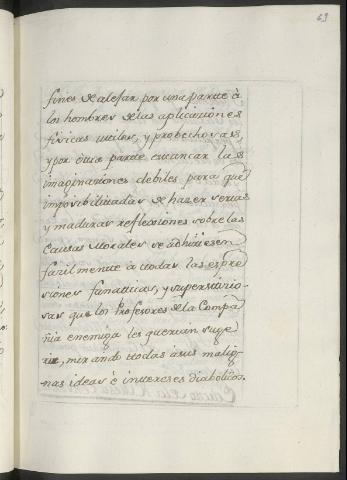 63
fines de alejar por una parte à
los hombres de las aplicaciones
fisicas utiles, y probechosas,
y por otra parte estancar las
imaginaciones debiles para que
imposibilitadas de hazer serias
y maduras reflecciones sobre las
Causas Morales se adhiriesen
fazilmente à todas las espre
siones fanaticas, y supersticio-
sas que los Profesores de la Compa
ñia enemiga les querian suge
rir, mirando todas à sus malig-
nas ideas è intereses diabolicos.